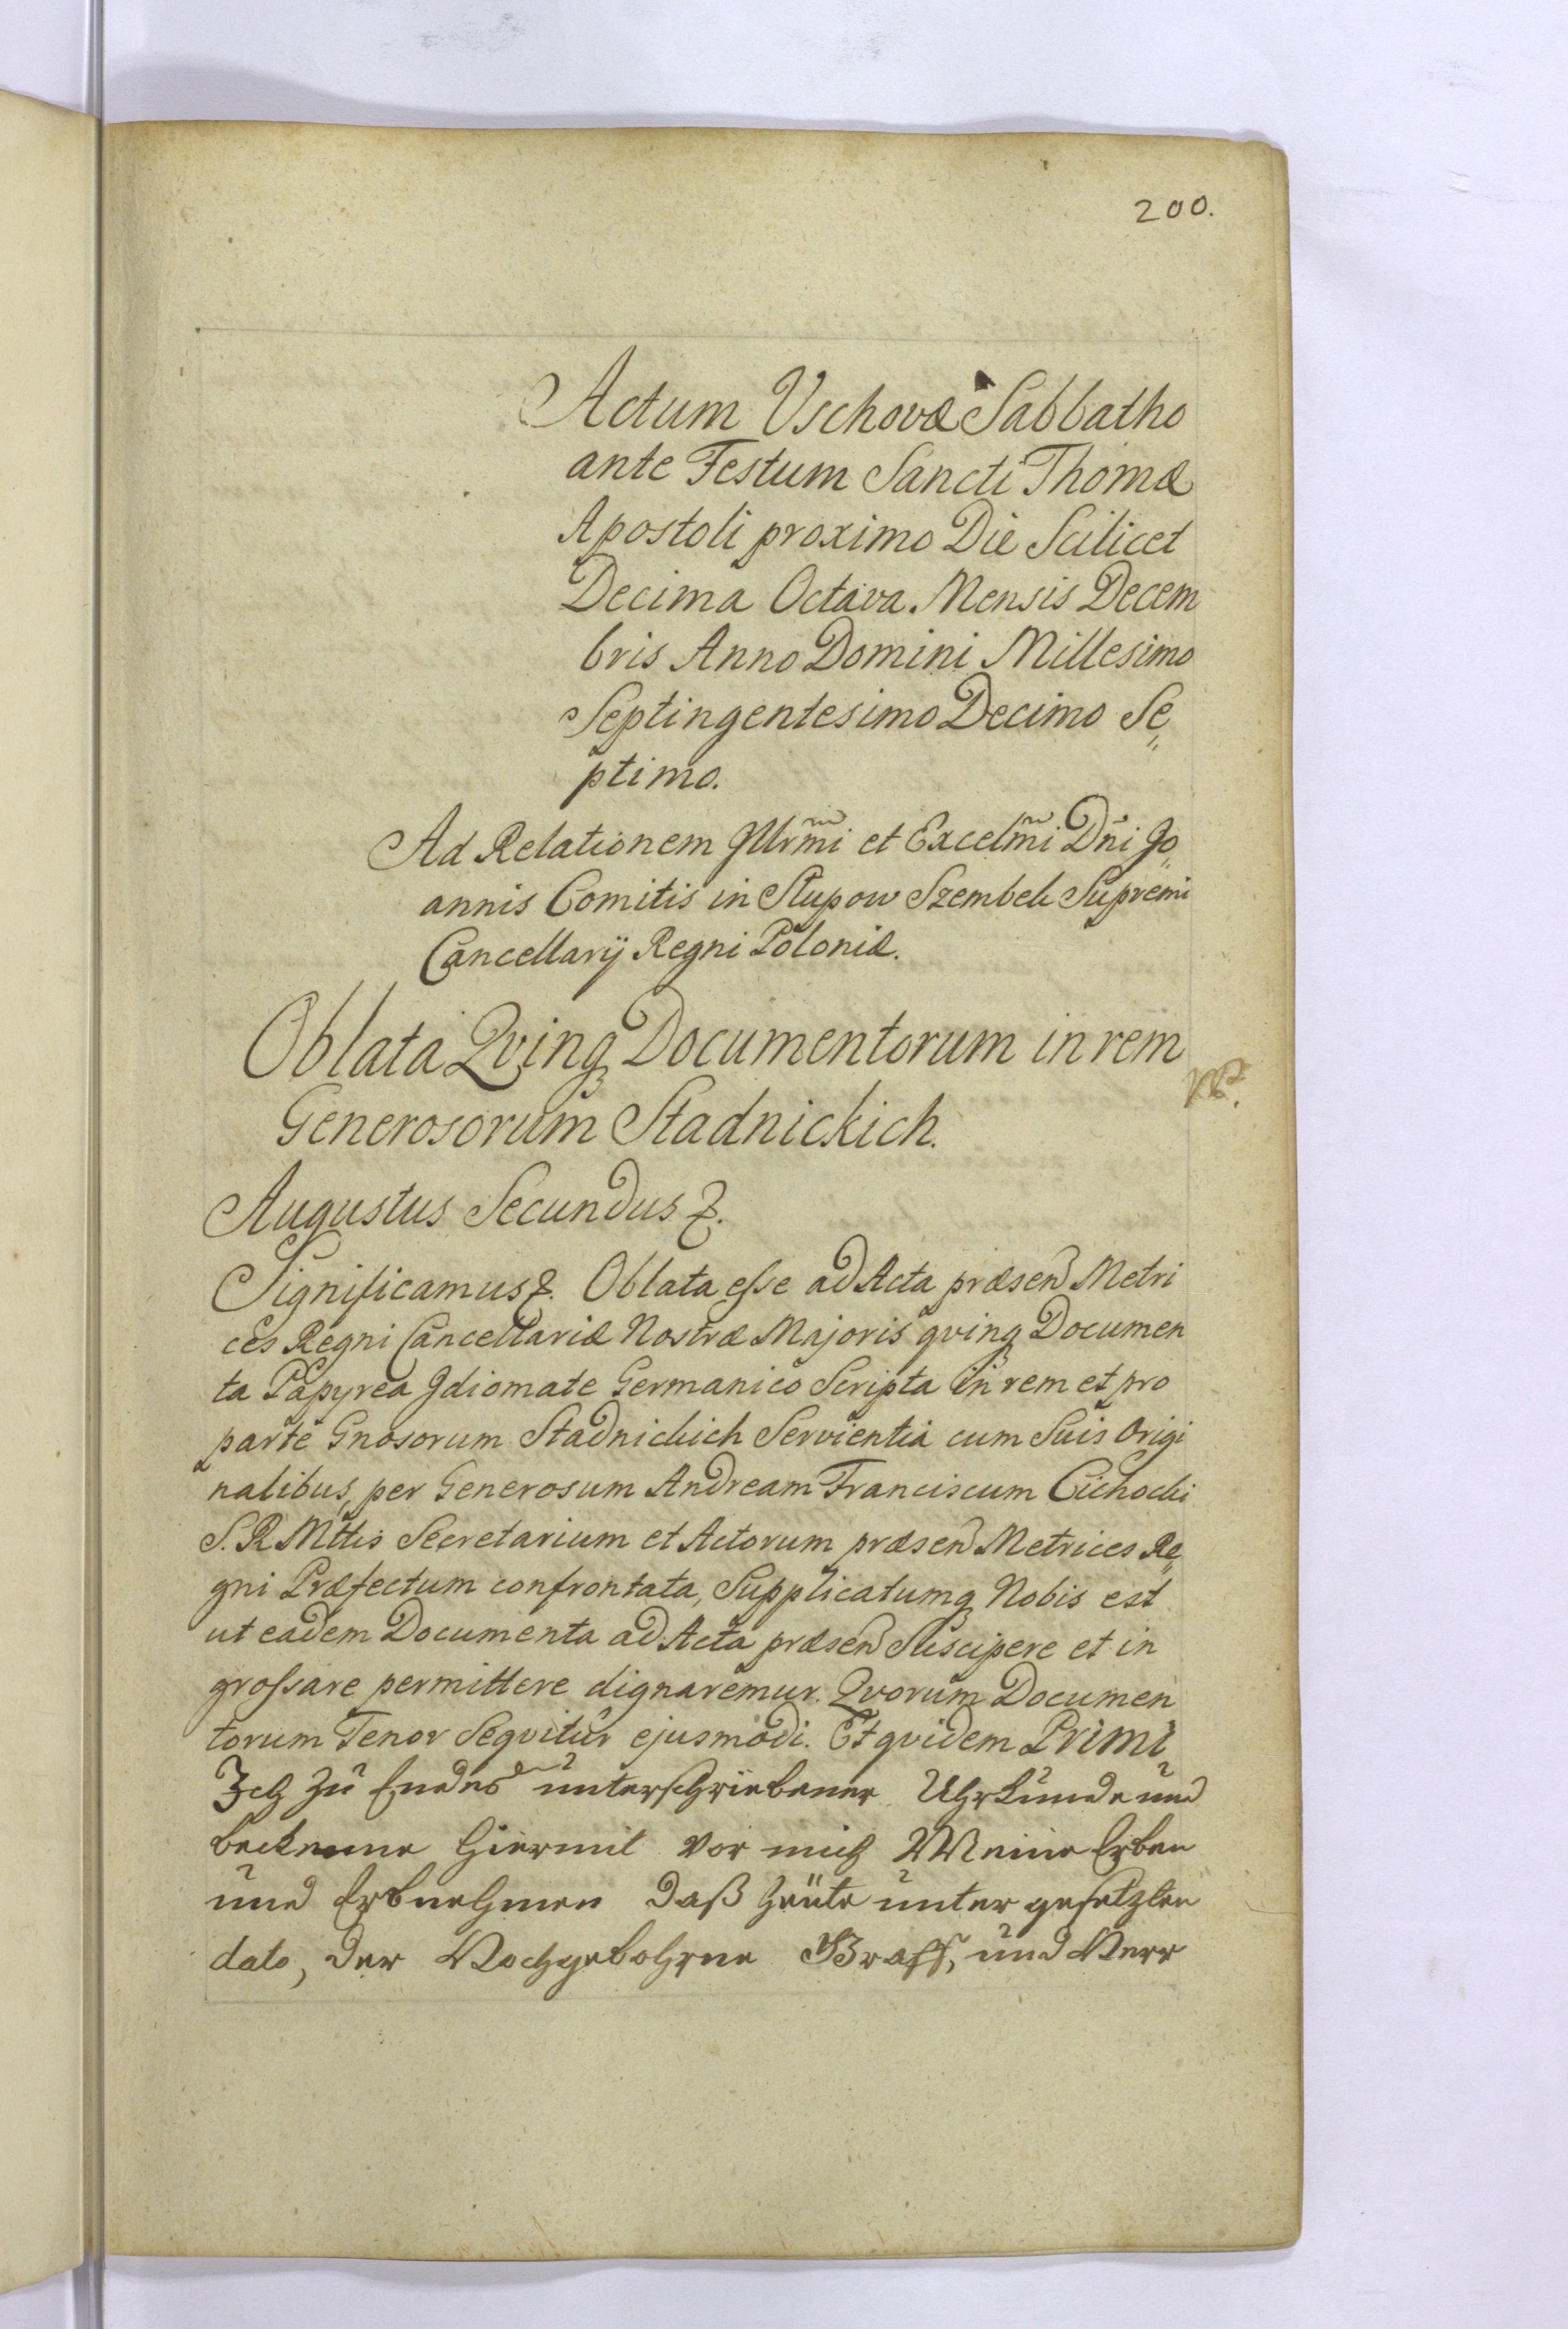 200.
Actum Vschovæ Sabbatho
ante Festum Sancti Thomæ
Apostoli proximo Die Scilicet
Decima Octava Mensis Decem
bris Anno Domini Millesimo
Septingentesimo Decimo Se„
ptimo.
Ad Relationem Jllrm̃i et Excelm̃i Dñi Jo„
annis Comitis in Słupow Szembek Supremi
Cancellarij Regni Poloniæ.
Oblata Qvinqꝫ Documentorum in rem
Generosorum Stadnickich.
Augustus Secundus ꝛ.
Significamus ꝛ. Oblata esse ad Acta præsen Metri
ces Regni Cancellariæ Nostræ Majoris qvinqꝫ Documen
ta Papyrea Jdiomate Germanico Scripta in rem et pro
parte Gnosorum Stadnickich Servientia cum Suis Origi
nalibus, per Generosum Andream Franciscum Cichocki
S. R. Mttis Secretarium et Actorum præsen Metrices Re„
gni Præfectum confrontata, Supplicatumqꝫ Nobis est
ut eadem Documenta ad Acta præsen Suscipere et in
grossare permittere dignaremur. Qvorum Documen
torum Tenor Seqvitur ejusmodi. Et qvidem Primi
Ich zu Endes unterschriebener Uhrkunde und
beckenne hiermit vor mich Meine Erben
und Erbnehmen daß heüte unter gesetzten
dato, der Hochgebohrne Graff, und Herr